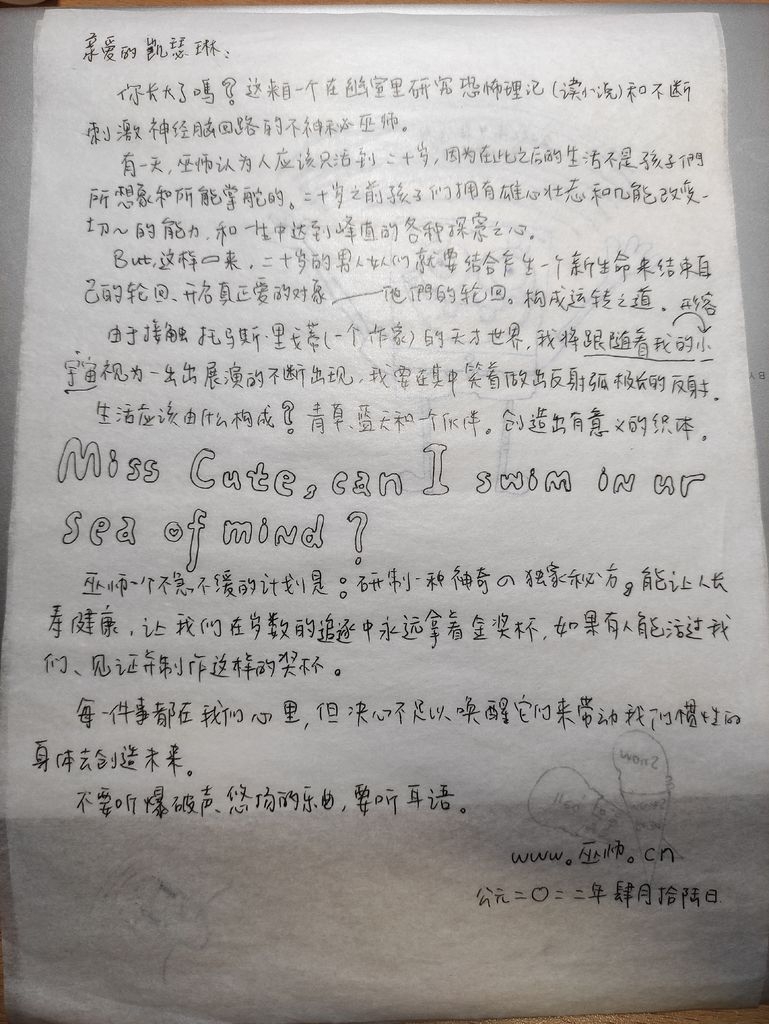 亲爱的凯瑟琳：
你长大了嗎？这来自一个在幽室里研究恐怖理论（读小说）和不断
刺激神经脑回路的不神秘巫师。
有一天，巫师认为人应该只活到二十岁，因为在此之后的生活不是孩子們
所想象和所能掌舵的。二十岁之前孩子们拥有雄心壮志和几能改变一
切～的能力，和一生中达到峰值的各种探索之心。
But,这样一来，二十岁的男人女人们就要结合产生一个新生命来结束自
己的轮回、开启真正爱的对象——他們的轮回。构成运转之道。形容
由于接触托马斯·里戈蒂(一个作家)的天才世界，我将跟随着我的小
宇宙视为一出出展演的不断出现，我要在其中笑着做出反射弧极长的反射。
生活应该由什么构成？青草、蓝天和一个伙伴。创造出有意义的织体。
Miss Cute, can I swim in ur
sea of mind?
巫师一个不急不缓的计划是：研制一种神奇の独家秘方。能让人长
寿健康，让我们在岁数的追逐中永远拿着金奖杯，如果有人能活过我
们、见证并制作这样的奖杯。
每一件事都在我们心里，但决心不足以唤醒它们来带动我们惯性的
身体去创造未来。
不要听爆破声、悠扬的乐曲，要听耳语。
www。巫师。cn
公元二〇二二年肆月拾陆日